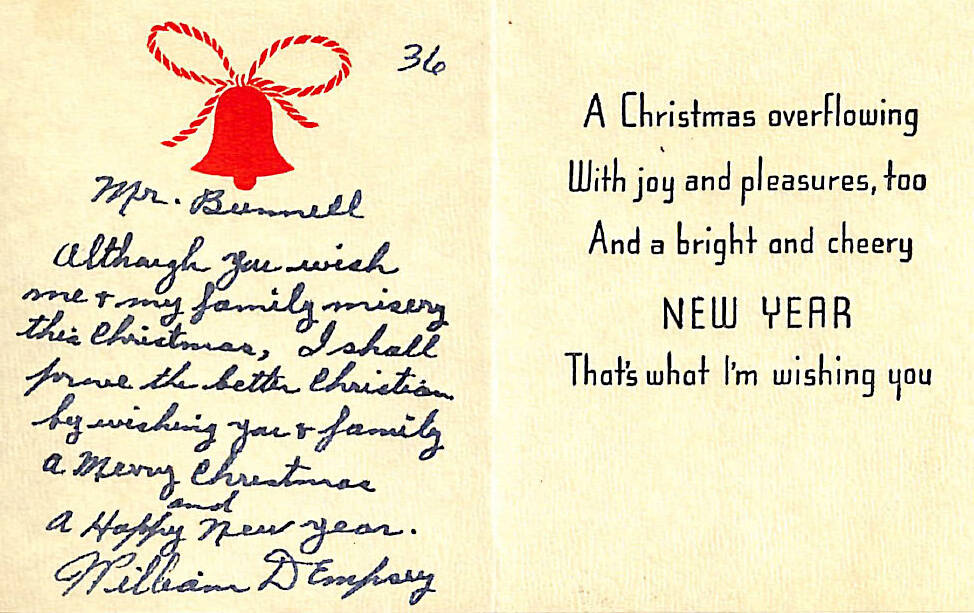 36
Mr. Bunnell
Although you wish
me + my family misery
this Christmas, I shall
prove the better Christian
by wishing you + family
a Merry Christmas
and
a Happy New year.
William DEmpsey
A Christmas overflowing
With joy and pleasures, too
And a bright and cheery
NEW YEAR
That's what I'm wishing you